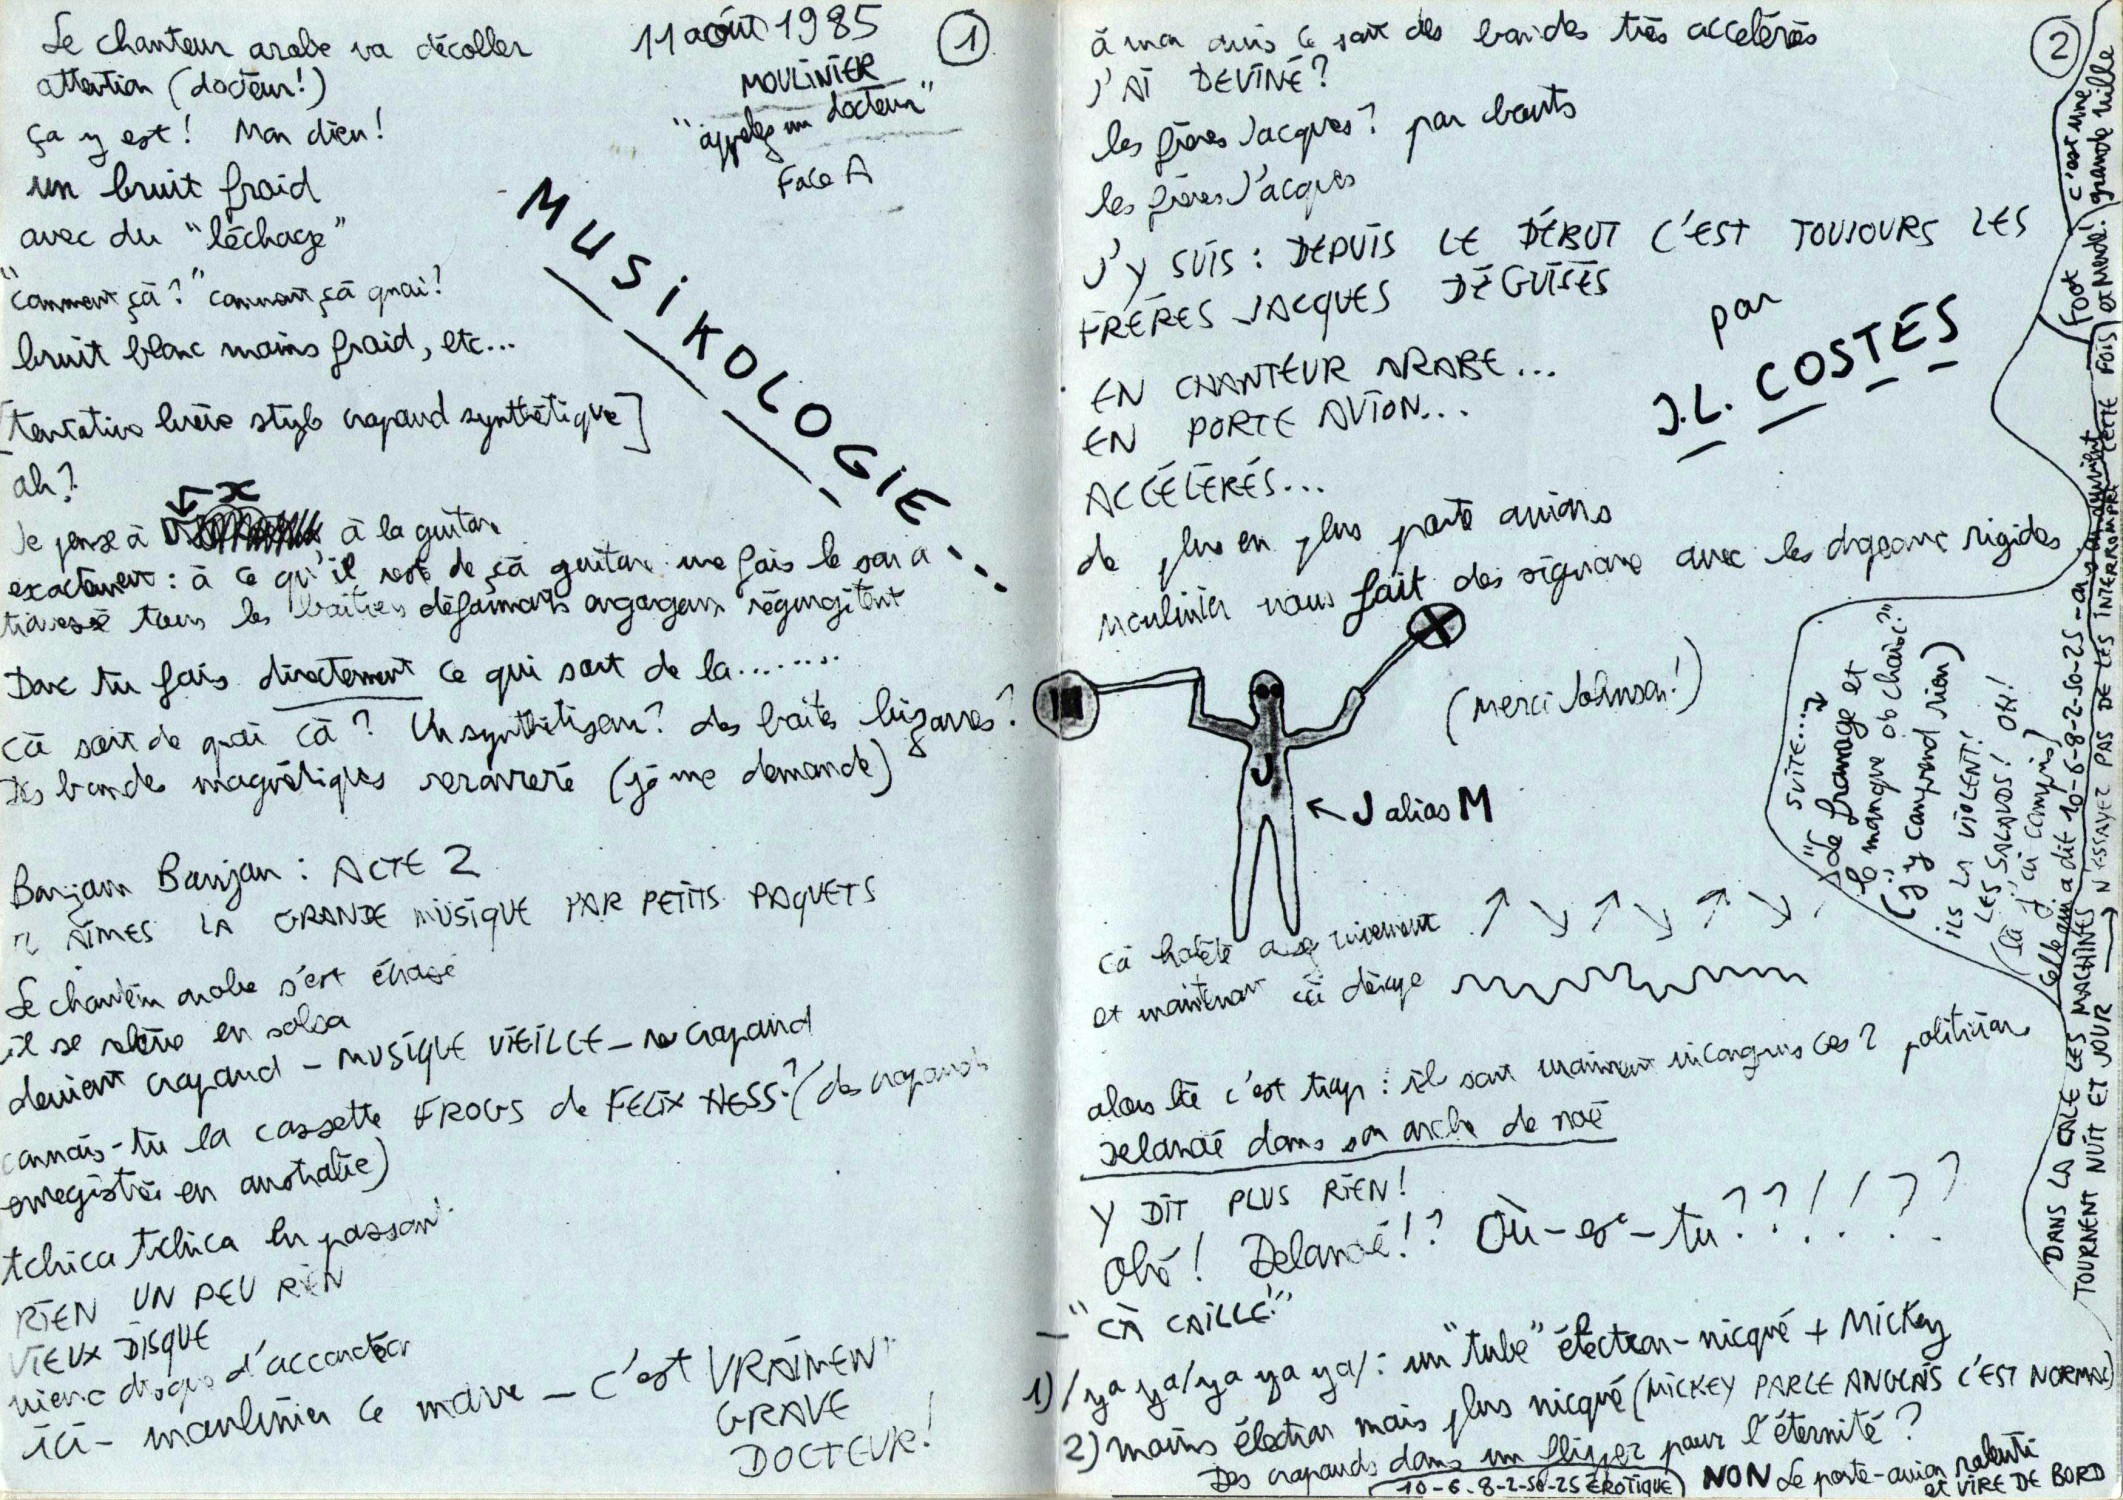 Le chanteur arabe va décoller
attention (docteur!)
ça y est! Mon dieu!
un bruit froid
avec du "léchage"
"comment çà?" comment çà quoi?
bruit blanc moins froid, etc...
[tentative brève style crapaud synthétique]
ah?
x
Je pense à à la guitare
exactement: à ce qu'il reste de çà guitare une fois le son a
traversé tous les boîtiers déformants régurgitant
Donc tu fais directement ce qui sort de la........
cà sort de quoi cà? Un synthétiseur? des boîtes bizarres?
Des bandes magnétiques (je me demande)
Banjam Banjan: ACTE 2
AIMES LA GRANDE MUSIQUE PAR PETITS PAQUETS
Le chanteur arabe s'est
il se relève en salsa
devient crapaud - MUSIQUE VIEILLE - re crapaud
connais-tu la cassette FROGS de FELIX HESS? (des crapauds
enregistrés en australie)
tchica tchica en passant
RIEN UN PEU RIEN
VIEUX DISQUE
vieux disque d'accordéon
ici - moulinier ce - C'est VRAIMENT
GRAVE
DOCTEUR!
11 août 1985
1
MOULINIER
"appelez un docteur"
Face A
MUSIKOLOGIE...
2
à mon avis ce sont des bandes très accélérées
J'AI DEVINÉ?
les frères Jacques? par bouts
les frères J'acques
J'Y SUIS: DEPUIS LE DÉBUT C'EST TOUJOURS LES
FRÈRES JACQUES DÉGUISÉS
EN CHANTEUR ARABE...
EN PORTE AVION...
ACCÉLÉRÉS...
par
J.L. COSTES
de plus en plus porte avions
Moulinier nous fait des signaux avec les drapeaux rigides
(merci Johnson!)
J
J alias M
cà halète
et maintenant cà
alors là c'est trop: ils sont vraiment incongrus ces 2 politiciens
Delanoé dans son arche de noé
Y DIT PLUS RIEN!
Ohé! Delanoé!? Où-es-tu??!!??
- "CÀ CAILLE!"
1) /ya ya/ya ya ya/: un "tube" électron-nicqué + Mickey
2) moins électron mais plus nicqué (MICKEY PARLE ANGLAIS C'EST NORMAL)
Des crapauds dans un flipper pour l'éternité?
(10-6-8-2-50-25 ÉROTIQUE) NON Le porte-avion ralenti
et VIRE DE BORD
SUITE...
"de fromage et
le manque de choix?"
(j'y comprend rien)
ILS LA VIOLENT!
LES SALAUDS! OH!
(là j'ai compris)
celle qui a dit 10-6-8-2-50-25-
DANS LA CALE LES MACHINES N'ESSAYEZ PAS DE LES INTERROMPRE CETTE FOIS
TOURNENT NUIT ET JOUR
Foot
c'est une
grande ville